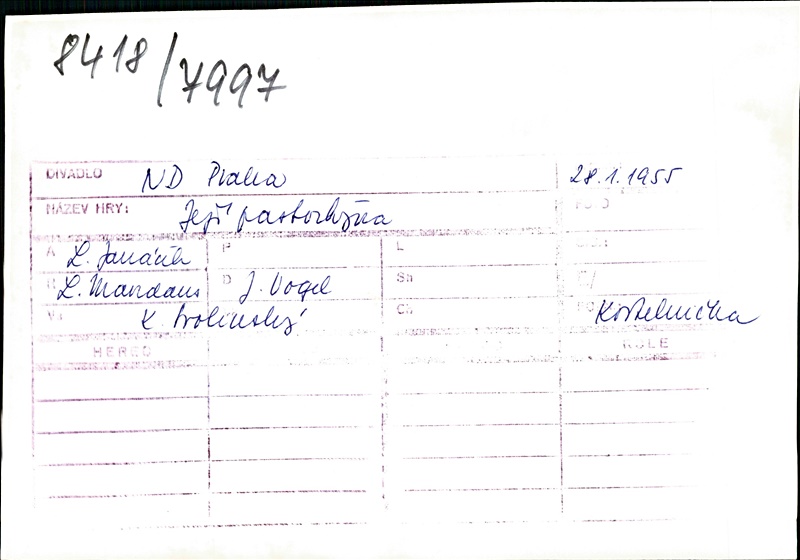 8418/7997
DIVADLO ND Praha 28.1.1955
NÁZEV HRY: Její pastorkyňa
A L. Janáček P L
L. Mandaus D J. Vogel Sh
K. Svolinský Ch Kostelnička
HERCO ROLE